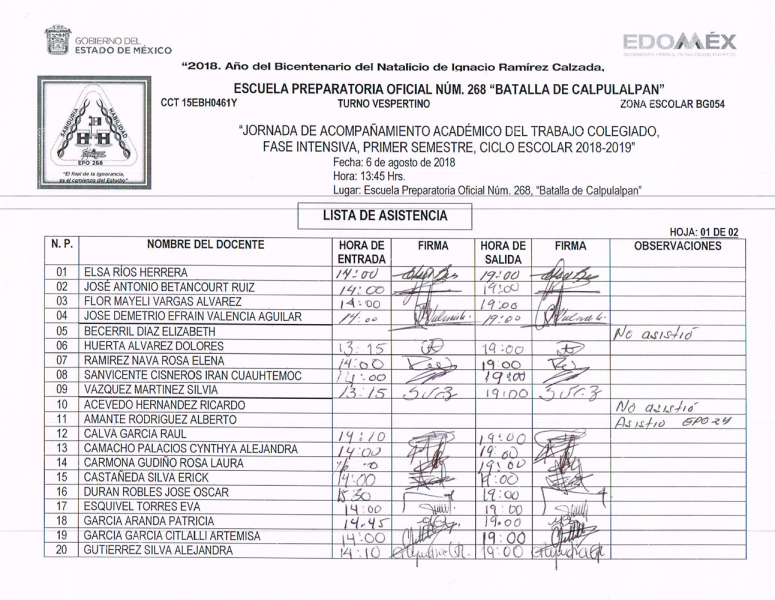 GOBIERNO DEL
ESTADO DE MÉXICO
EDOMÉX
“2018. Año del Bicentenario del Natalicio de Ignacio Ramírez Calzada,
ESCUELA PREPARATORIA OFICIAL NÚM. 268 “BATALLA DE CALPULALPAN”
CCT 15EBH0461Y TURNO VESPERTINO ZONA ESCOLAR BG054
SABIDURIA HABILIDAD
EPO 268
"El final de la ignorancia,
es el comienzo del Estudio"
“JORNADA DE ACOMPAÑAMIENTO ACADÉMICO DEL TRABAJO COLEGIADO,
FASE INTENSIVA, PRIMER SEMESTRE, CICLO ESCOLAR 2018-2019”
Fecha: 6 de agosto de 2018
Hora: 13:45 Hrs.
Lugar: Escuela Preparatoria Oficial Núm. 268, “Batalla de Calpulalpan”
LISTA DE ASISTENCIA
HOJA: 01 DE 02
N. P. NOMBRE DEL DOCENTE HORA DE ENTRADA FIRMA HORA DE SALIDA FIRMA OBSERVACIONES
01 ELSA RÍOS HERRERA 14:00 19:00
02 JOSÉ ANTONIO BETANCOURT RUIZ 14:00 19:00
03 FLOR MAYELI VARGAS ALVAREZ 14:00 19:00
04 JOSE DEMETRIO EFRAIN VALENCIA AGUILAR 14:00 19:00
05 BECERRIL DIAZ ELIZABETH No asistió
06 HUERTA ALVAREZ DOLORES 13:15 19:00
07 RAMIREZ NAVA ROSA ELENA 14:00 19:00
08 SANVICENTE CISNEROS IRAN CUAUHTEMOC 14:00 19:00
09 VAZQUEZ MARTINEZ SILVIA 13:15 19:00
10 ACEVEDO HERNANDEZ RICARDO No asistió
11 AMANTE RODRIGUEZ ALBERTO Asistio EPO 24
12 CALVA GARCIA RAUL 14:10 19:00
13 CAMACHO PALACIOS CYNTHYA ALEJANDRA 14:00 19:00
14 CARMONA GUDIÑO ROSA LAURA 19:00
15 CASTAÑEDA SILVA ERICK 14:00 19:00
16 DURAN ROBLES JOSE OSCAR 15:30 19:00
17 ESQUIVEL TORRES EVA 14:00 19:00
18 GARCIA ARANDA PATRICIA 14.45 19.00
19 GARCIA GARCIA CITLALLI ARTEMISA 14:00 19:00
20 GUTIERREZ SILVA ALEJANDRA 14:10 19:00